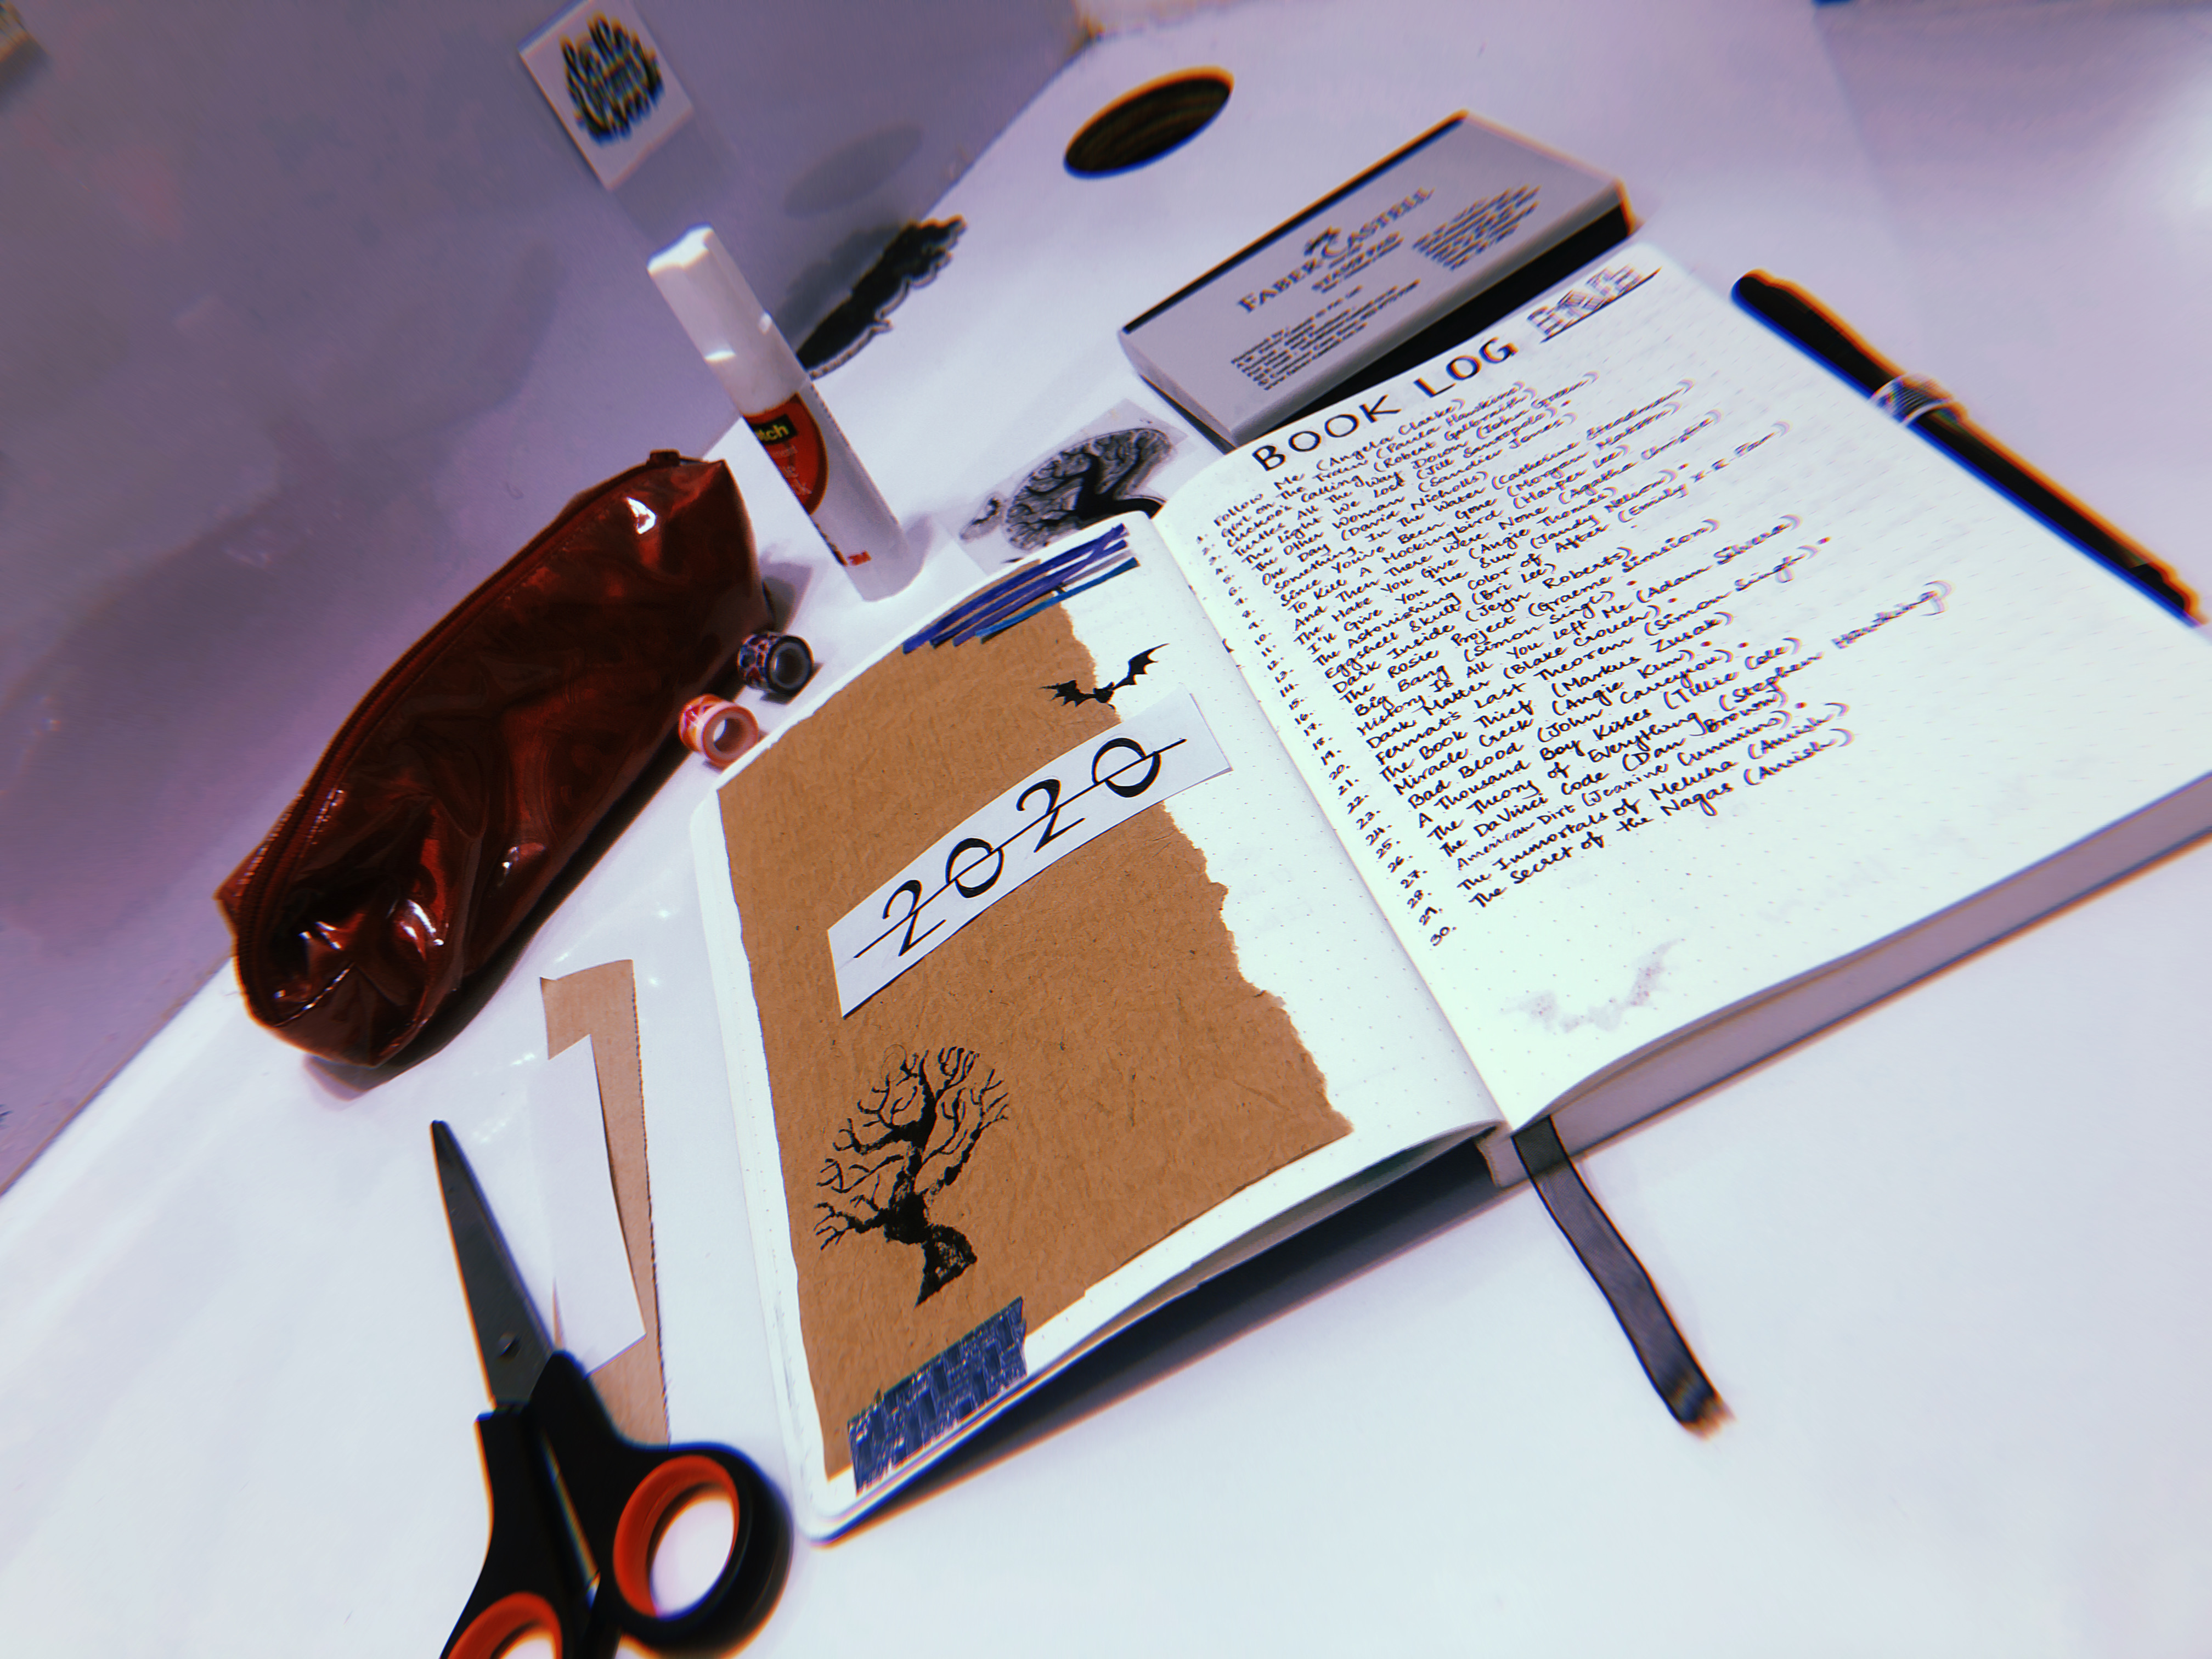 FABER CASTELL
STAMP PAD
Scotch
3M
2020
BOOK LOG
1. Follow Me (Angela Clarke)
2. Girl on The Train (Paula Hawkins)
3. Cuckoo's Calling (Robert Galbraith)
4. Turtles All The Way Down (John Green)
5. The Light We Lost (Jill Santopolo)
6. The Other Woman (Sandie Jones)
7. One Day (David Nicholls)
8. Something In The Water (Catherine Steadman)
9. Since You've Been Gone (Morgan Matson)
10. To Kill A Mockingbird (Harper Lee)
11. And Then There Were None (Agatha Christie)
12. The Hate You Give (Angie Thomas)
13. I'll Give You The Sun (Jandy Nelson)
14. The Astonishing Color of After (Emily X.R. Pan)
15. Eggshell Skull (Bri Lee)
16. Dark Inside (Jeyn Roberts)
17. The Rosie Project (Graeme Simsion)
18. Big Bang (Simon Singh)
19. History Is All You Left Me (Adam Silvera)
20. Dark Matter (Blake Crouch)
21. Fermat's Last Theorem (Simon Singh)
22. The Book Thief (Markus Zusak)
23. Miracle Creek (Angie Kim)
24. Bad Blood (John Carreyrou)
25. A Thousand Boy Kisses (Tillie Cole)
26. The Theory of Everything (Stephen Hawking)
27. The DaVinci Code (Dan Brown)
28. American Dirt (Jeanine Cummins)
29. The Immortals of Meluha (Amish)
30. The Secret of the Nagas (Amish)